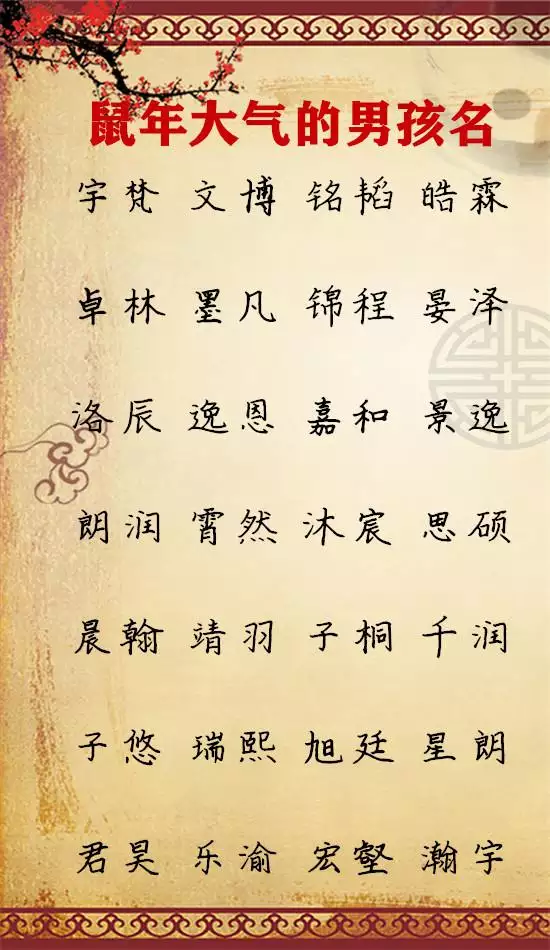 鼠年大气的男孩名
宇梵 文博 铭韬 皓霖
卓林 墨凡 锦程 晏泽
洛辰 逸恩 嘉和 景逸
朗润 霄然 沐宸 思硕
晨翰 靖羽 子桐 千润
子悠 瑞熙 旭廷 星朗
君昊 乐渝 宏壑 瀚宇